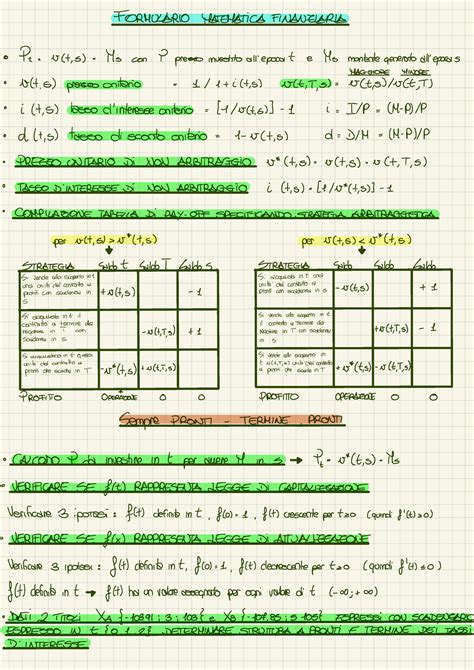 FORMULARIO MATEMATICA FINANZIARIA
• Pt = v(t,s) · Ms con P prezzo investito all'epoca t e Ms montante generato all'epoca s
MAGGIORE MINORE
• v(t,s) prezzo unitario = 1 / 1+i(t,s) v(t,T,s) = v(t,s)/v(t,T)
• i(t,s) tasso d'interesse unitario = [1/v(t,s)] - 1 i = I/P = (M-P)/P
• d(t,s) tasso di sconto unitario = 1-v(t,s) d = D/M = (M-P)/P
• PREZZO UNITARIO DI NON ARBITRAGGIO v*(t,s) = v(t,s) · v(t,T,s)
• TASSO D'INTERESSE DI NON ARBITRAGGIO i (t,s) = [1/v*(t,s)] - 1
• COMPILAZIONE TABELLA DI PAY-OFF SPECIFICANDO STRATEGIA ARBITRAGGISTA
per v(t,s) > v*(t,s) per v(t,s) < v*(t,s)
STRATEGIA Saldo t Saldo T Saldo s STRATEGIA Saldo t Saldo T Saldo s
Si vende allo scoperto in t una unità del contratto a pronti con scadenza in s +v(t,s) - 1
Si acquista in t il contratto a termine da regolare in T con scadenza s -v(t,T,s) + 1
Si acquistano in t unità del contratto a pronti che scade in T -v*(t,s) +v(t,T,s)
PROFITTO OPERAZIONE 0 0
Si acquista in t una unità del contratto a pronti con scadenza in s -v(t,s) + 1
Si vende allo scoperto in t il contratto a termine da regolare in T con scadenza in s +v(t,T,s) - 1
Si vende allo scoperto in t unità del contratto a pronti che scade in T +v*(t,s) -v(t,T,s)
PROFITTO OPERAZIONE 0 0
Sempre PRONTI - TERMINE, PRONTI
• CALCOLO P da investire in t per avere M in s → Pt = v*(t,s) · Ms
• VERIFICARE SE f(t) RAPPRESENTA LEGGE DI CAPITALIZZAZIONE
Verificare 3 ipotesi: f(t) definita in t, f(0)=1, f(t) crescente per t≥0 (quindi f'(t)≥0)
• VERIFICARE SE f(t) RAPPRESENTA LEGGE DI ATTUALIZZAZIONE
Verificare 3 ipotesi: f(t) definita in t, f(0)=1, f(t) decrescente per t≥0 (quindi f'(t)≤0)
f(t) definita in t → f(t) ha un valore assegnato per ogni valore di t (-∞;+∞)
• DATI 2 TITOLI XA {-103,91; 3; 103} e XB {-107,85; 5; 105} ESPRESSI CON SCADENZARIO
ESPRESSO IN t {0, 1, 2} DETERMINARE STRUTTURA A PRONTI E TERMINE DEI TASSI
D'INTERESSE